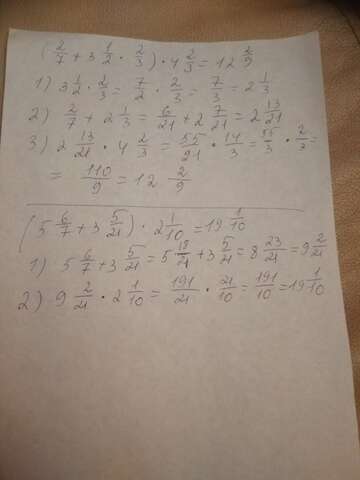 (2/7 + 3 1/2 · 2/3) · 4 2/3 = 12 2/9
1) 3 1/2 · 2/3 = 7/2 · 2/3 = 7/3 = 2 1/3
2) 2/7 + 2 1/3 = 6/21 + 2 7/21 = 2 13/21
3) 2 13/21 · 4 2/3 = 55/21 · 14/3 = 55/3 · 2/3 =
= 110/9 = 12 2/9
(5 6/7 + 3 5/21) · 2 1/10 = 19 1/10
1) 5 6/7 + 3 5/21 = 5 18/21 + 3 5/21 = 8 23/21 = 9 2/21
2) 9 2/21 · 2 1/10 = 191/21 · 21/10 = 191/10 = 19 1/10